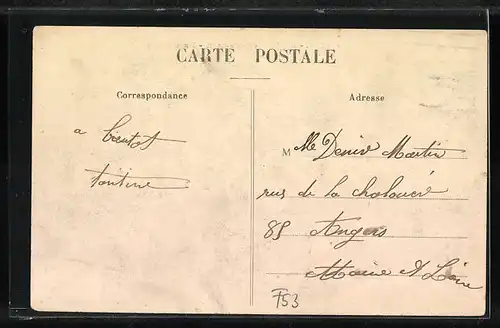 CARTE POSTALE
Correspondance
Adresse
a bientot
M lle Denise Martin
rue de la chalouère
85 Angers
Maine et Loire
F53